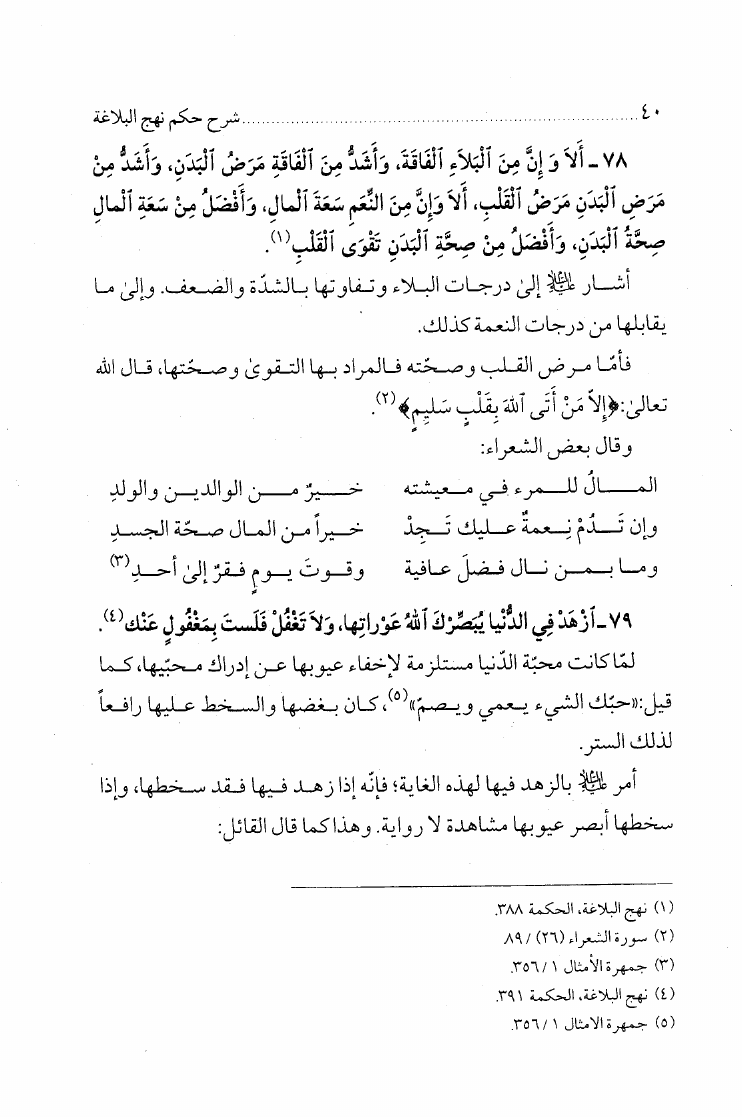 ٤٠ ........................................................ شرح حكم نهج البلاغة
٧٨ ـ أَلاَ وَ إِنَّ مِنَ ٱلْبَلاَءِ ٱلْفَاقَةَ، وَأَشَدُّ مِنَ ٱلْفَاقَةِ مَرَضُ ٱلْبَدَنِ، وَأَشَدُّ مِنْ
مَرَضِ ٱلْبَدَنِ مَرَضُ ٱلْقَلْبِ، أَلاَ وَإِنَّ مِنَ النِّعَمِ سَعَةَ ٱلْمالِ، وَأَفْضَلُ مِنْ سَعَةِ ٱلْمالِ
صِحَّةُ ٱلْبَدَنِ، وَأَفْضَلُ مِنْ صِحَّةِ ٱلْبَدَنِ تَقْوَى ٱلْقَلْبِ(١).
أشـار عليه السلام إلىٰ درجـات البـلاء وتـفاوتها بـالشدّة والضـعف. وإلىٰ مـا
يقابلها من درجات النعمة كذلك.
فأمّـا مـرض القـلب وصـحّته فـالمراد بـها التـقوىٰ وصـحّتها، قـال الله
تعالىٰ:﴿إِلاَّ مَنْ أَتَى ٱللهَ بِقَلْبٍ سَلِيمٍ﴾(٢).
وقال بعض الشعراء:
المـــالُ للـــمرء فـي مـعيشته خـــيرٌ مـــن الوالديـــن والولدِ
وإن تَـــدُمْ نِـــعمةٌ عـــليك تَـــجِدْ خـــيراً مـن المـال صـحّة الجسـدِ
ومـا بـــمـن نـــال فـضلَ عـافية وقـوتَ يـومٍ فـقرٌ إلىٰ أحـدِ(٣)
٧٩ـ اَزْهَدْ فِي الدُّنْيا يُبَصِّرْكَ ٱللهُ عَوْراتِها، وَلاَ تَغْفُلْ فَلَستَ بِمَغْفُولٍ عَنْك(٤).
لمّا كانت محبّة الدّنيا مستلزمة لإخفاء عيوبها عـن إدراك محبّيها، كـما
قيل:«حبّك الشيء يـعمي ويـصمّ»(٥)، كـان بـغضها والسـخط عـليها رافـعاً
لذلك الستر.
أمر عليه السلام بالزهد فيها لهذه الغاية؛ فإنّه إذا زهـد فـيها فـقد سـخطها، وإذا
سخطها أبصر عيوبها مشاهدة لا رواية. وهذا كما قال القائل:
(١) نهج البلاغة، الحكمة ٣٨٨.
(٢) سورة الشعراء (٢٦) / ٨٩
(٣) جمهرة الأمثال ١ /٣٥٦.
(٤) نهج البلاغة، الحكمة ٣٩١.
(٥) جمهرة الامثال ١ /٣٥٦.